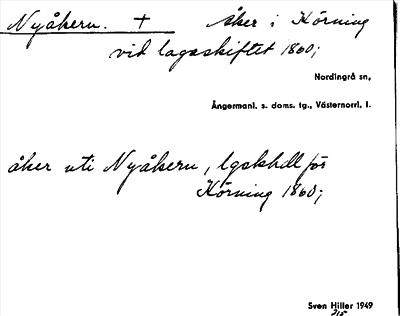 Nyåkern. + åker i Körning
vid lagaskiftet 1860;
Nordingrå sn,
Ångermanl. s. doms. tg., Västernorrl. l.
åker uti Nyåkern, lgskhdl för
Körning 1860;
Sven Hiller 1949
215